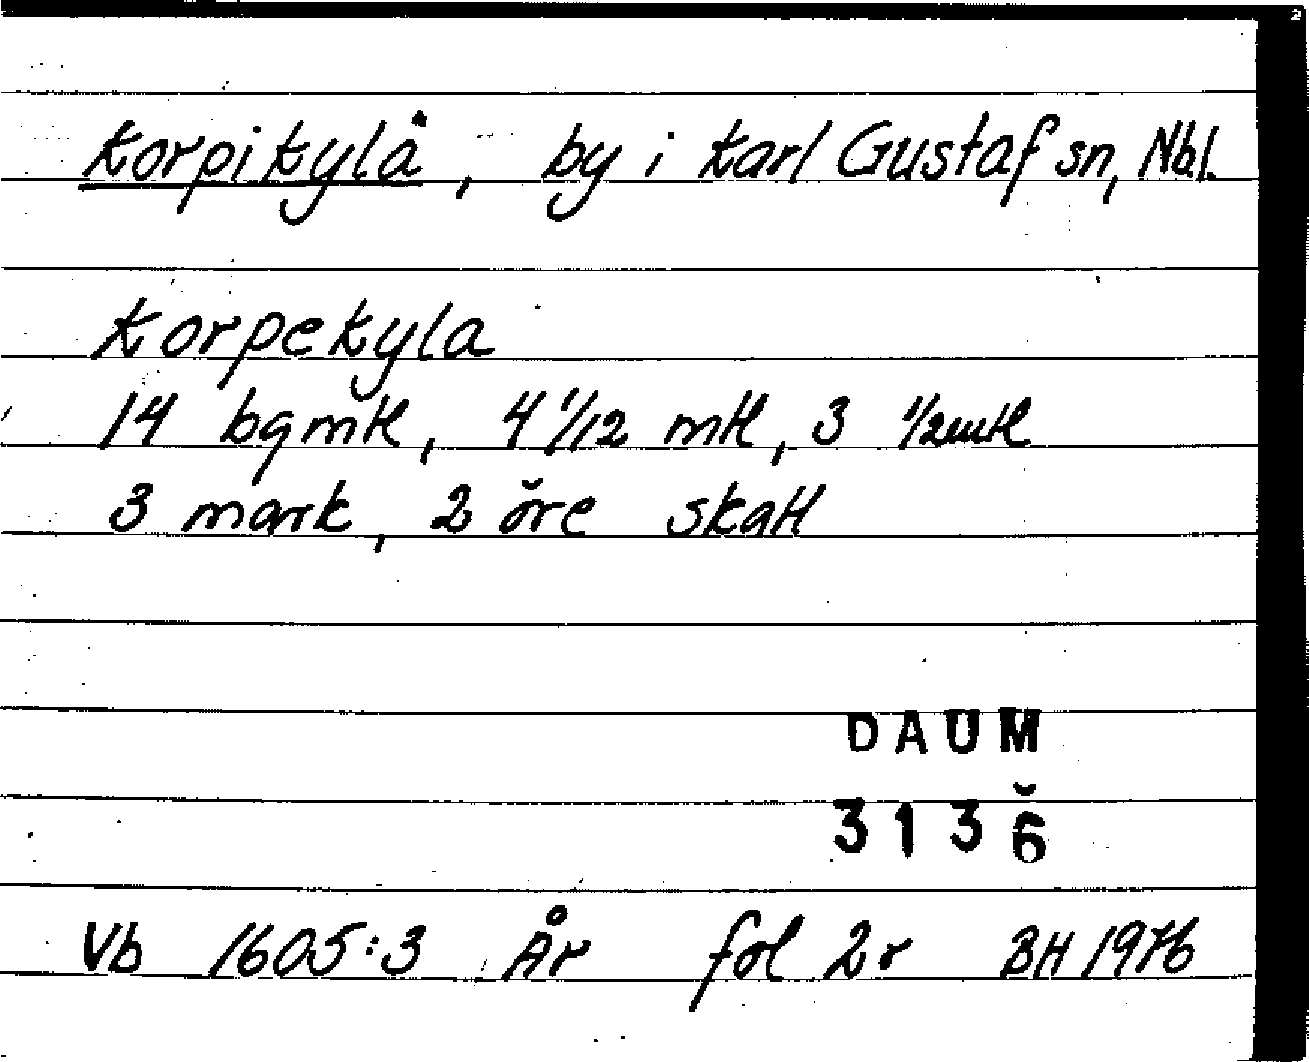 Korpikylå, by i Karl Gustaf sn, Nbl.
Korpekyla
14 bgmtl, 4 1/12 mtl, 3 1/2mtl
3 mark, 2 öre skatt
DAUM
3136
Vb 1605:3 År fol 2r BH 1976